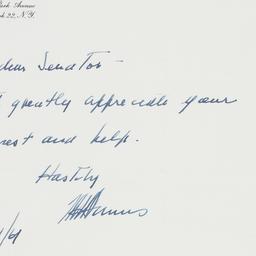 Park Avenue
22, N.Y.
dear Senator –
I greatly appreciate your
rest and help.
Hastily
/61